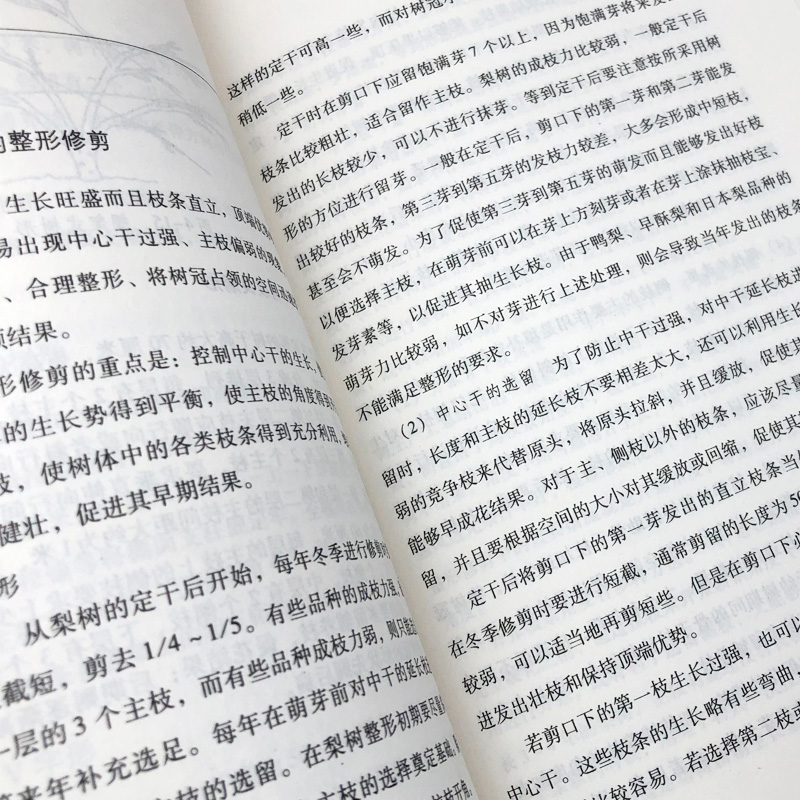 的整形修剪
生长旺盛而且枝条直立，顶端优
易出现中心干过强、主枝偏弱的现象
、合理整形、将树冠占领的空间
结果。
形修剪的重点是：控制中心干的生长，
的生长势得到平衡，使主枝的角度得
枝，使树体中的各类枝条得到充分利用，
健壮，促进其早期结果。
形
从梨树的定干后开始，每年冬季进行修剪时
截短，剪去1/4~1/5。有些品种的成枝力强，
一层的3个主枝，而有些品种成枝力弱，则只能
等来年补充选足。每年在萌芽前对中干的延长枝
主枝的选留。在梨树整形初期要尽量
主枝的选择奠定基础，
枝开角，
这样的定干可高一些，而对树冠
稍低一些。
定干时在剪口下应留饱满芽7个以上，因为饱满芽将来发
枝条比较粗壮，适合留作主枝。梨树的成枝力比较弱，一般定干后
发出的长枝较少，可以不进行抹芽。等到定干后要注意按所采用树
形的方位进行留芽。一般在定干后，剪口下的第一芽和第二芽能发
出较好的枝条，第三芽到第五芽的发枝力较差，大多会形成中短枝，
甚至会不萌发。为了促使第三芽到第五芽的萌发而且能够发出好枝
以便选择主枝，在萌芽前可以在芽上方刻芽或者在芽上涂抹抽枝宝、
发芽素等，以促进其抽生长枝。由于鸭梨、早酥梨和日本梨品种的
萌芽力比较弱，如不对芽进行上述处理，则会导致当年发出的枝条
不能满足整形的要求。
（2）中心干的选留 为了防止中干过强，对中干延长枝进
留时，长度和主枝的延长枝不要相差太大，还可以利用生长
弱的竞争枝来代替原头，将原头拉斜，并且缓放，促使其
能够早成花结果。对于主、侧枝以外的枝条，应该尽量
留，并且要根据空间的大小对其缓放或回缩，促使其
定干后将剪口下的第一芽发出的直立枝条当
在冬季修剪时要进行短截，通常剪留的长度为50
较弱，可以适当地再剪短些。但是在剪口下必
进发出壮枝和保持顶端优势。
若剪口下的第一枝生长过强，也可以
中心干。这些枝条的生长略有些弯曲，
比较容易。若选择第二枝或